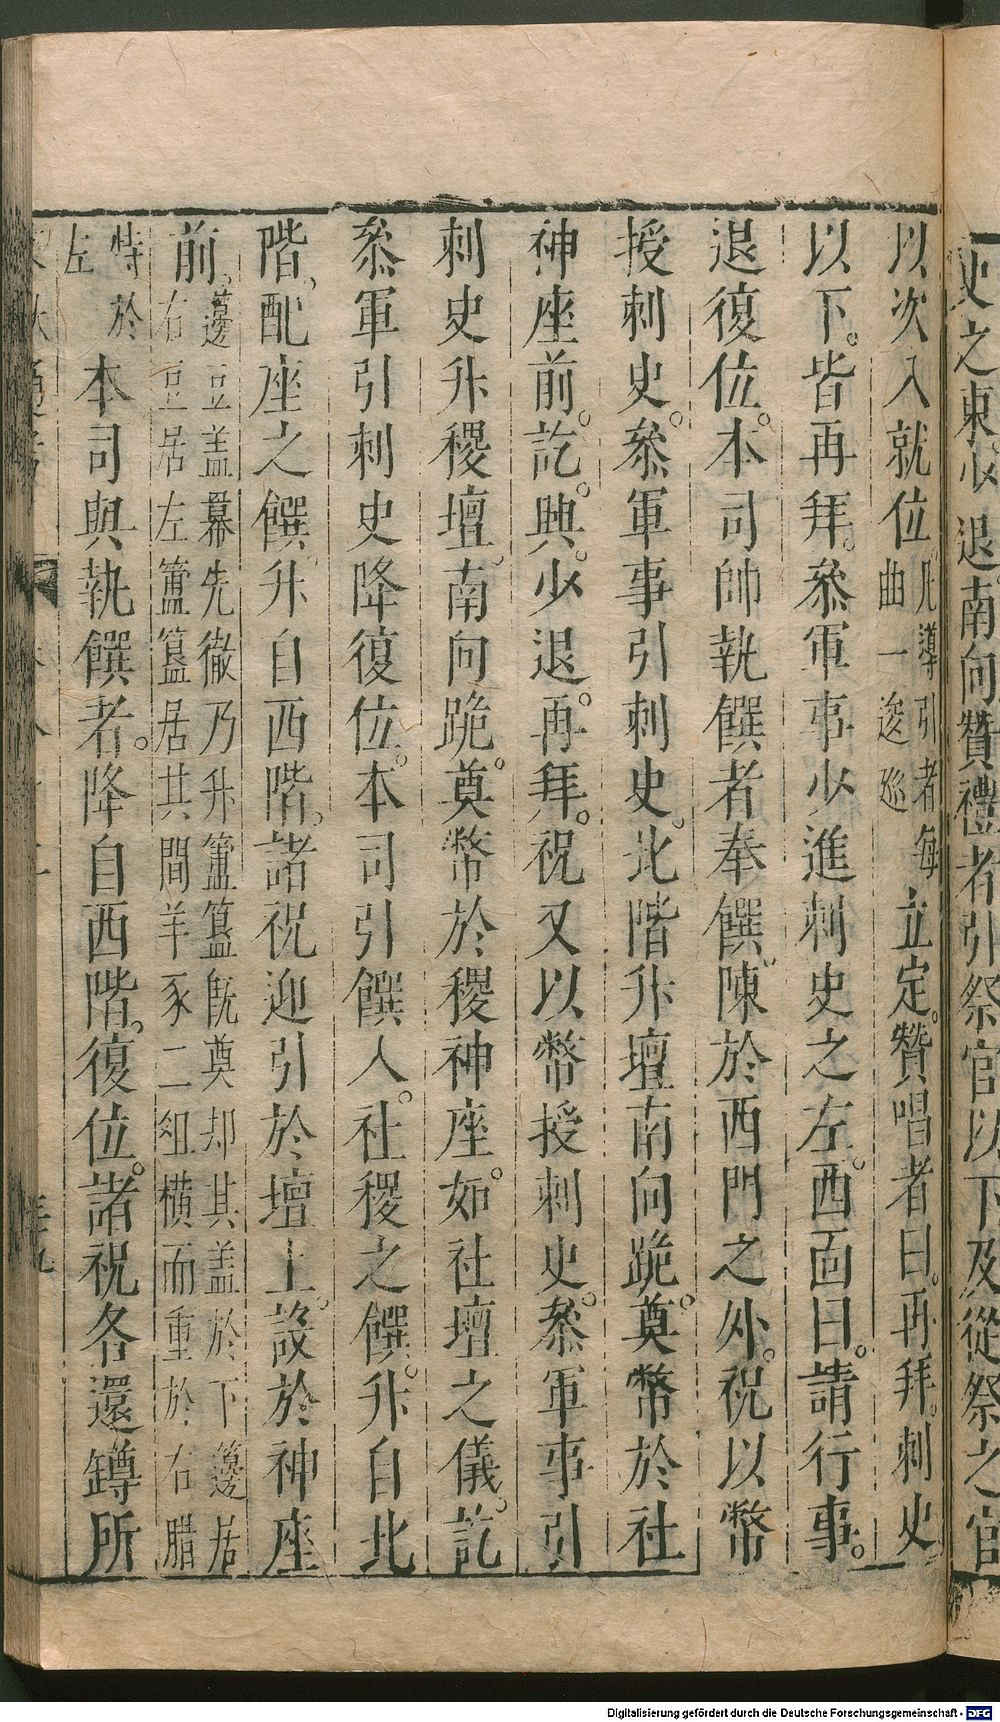 史之東少退南向贊禮者引祭官以下及從祭之官
以次入就位。凡導引者每曲一逡巡立定。贊唱者曰。再拜。刺史
以下。皆再拜。叅軍事少進刺史之左。西面曰。請行事。
退復位。本司帥執饌者奉饌。陳於西門之外。祝以幣
授刺史。叅軍事引刺史。北階升壇南向跪。奠幣於社
神座前。訖。興。少退。再拜。祝又以幣授刺史。叅軍事引
刺史升稷壇。南向跪。奠幣於稷神座。如社壇之儀。訖
叅軍引刺史降復位。本司引饌人。社稷之饌。升自北
階。配座之饌。升自西階。諸祝迎引於壇上。設於神座
前。籩豆盖冪先徹乃升簠簋旣奠却其盖於下籩居右豆居左簠簋居其間羊豕二俎橫而重於右腊
特於左本司與執饌者。降自西階。復位。諸祝各還罇所
Digitalisierung gefördert durch die Deutsche Forschungsgemeinschaft - DFG